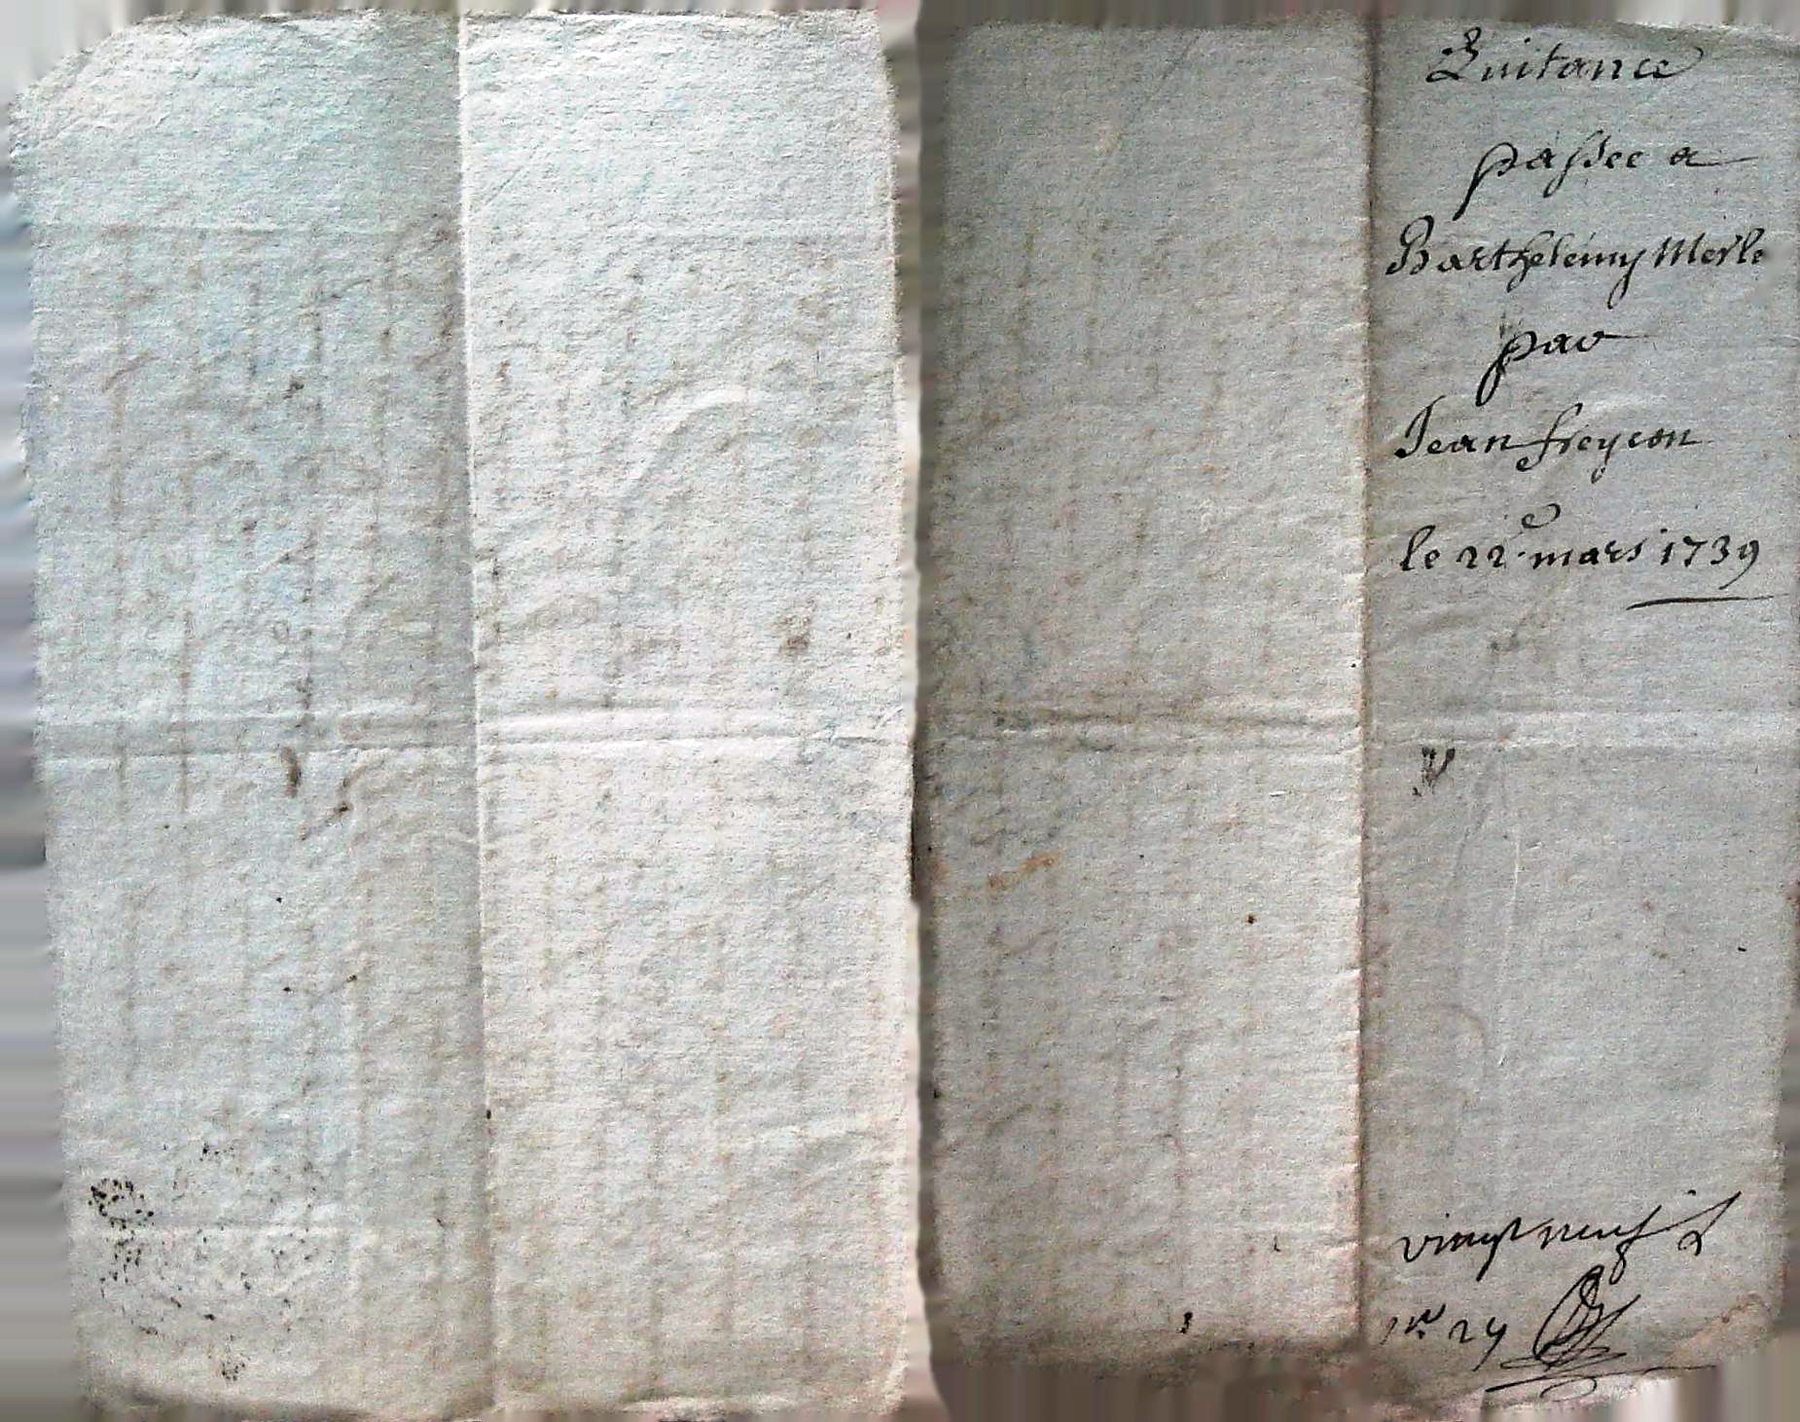 Quitance
passee a
Barthelemy Merle
par
Jean freycon
le 22e mars 1739
vingt neuf
29